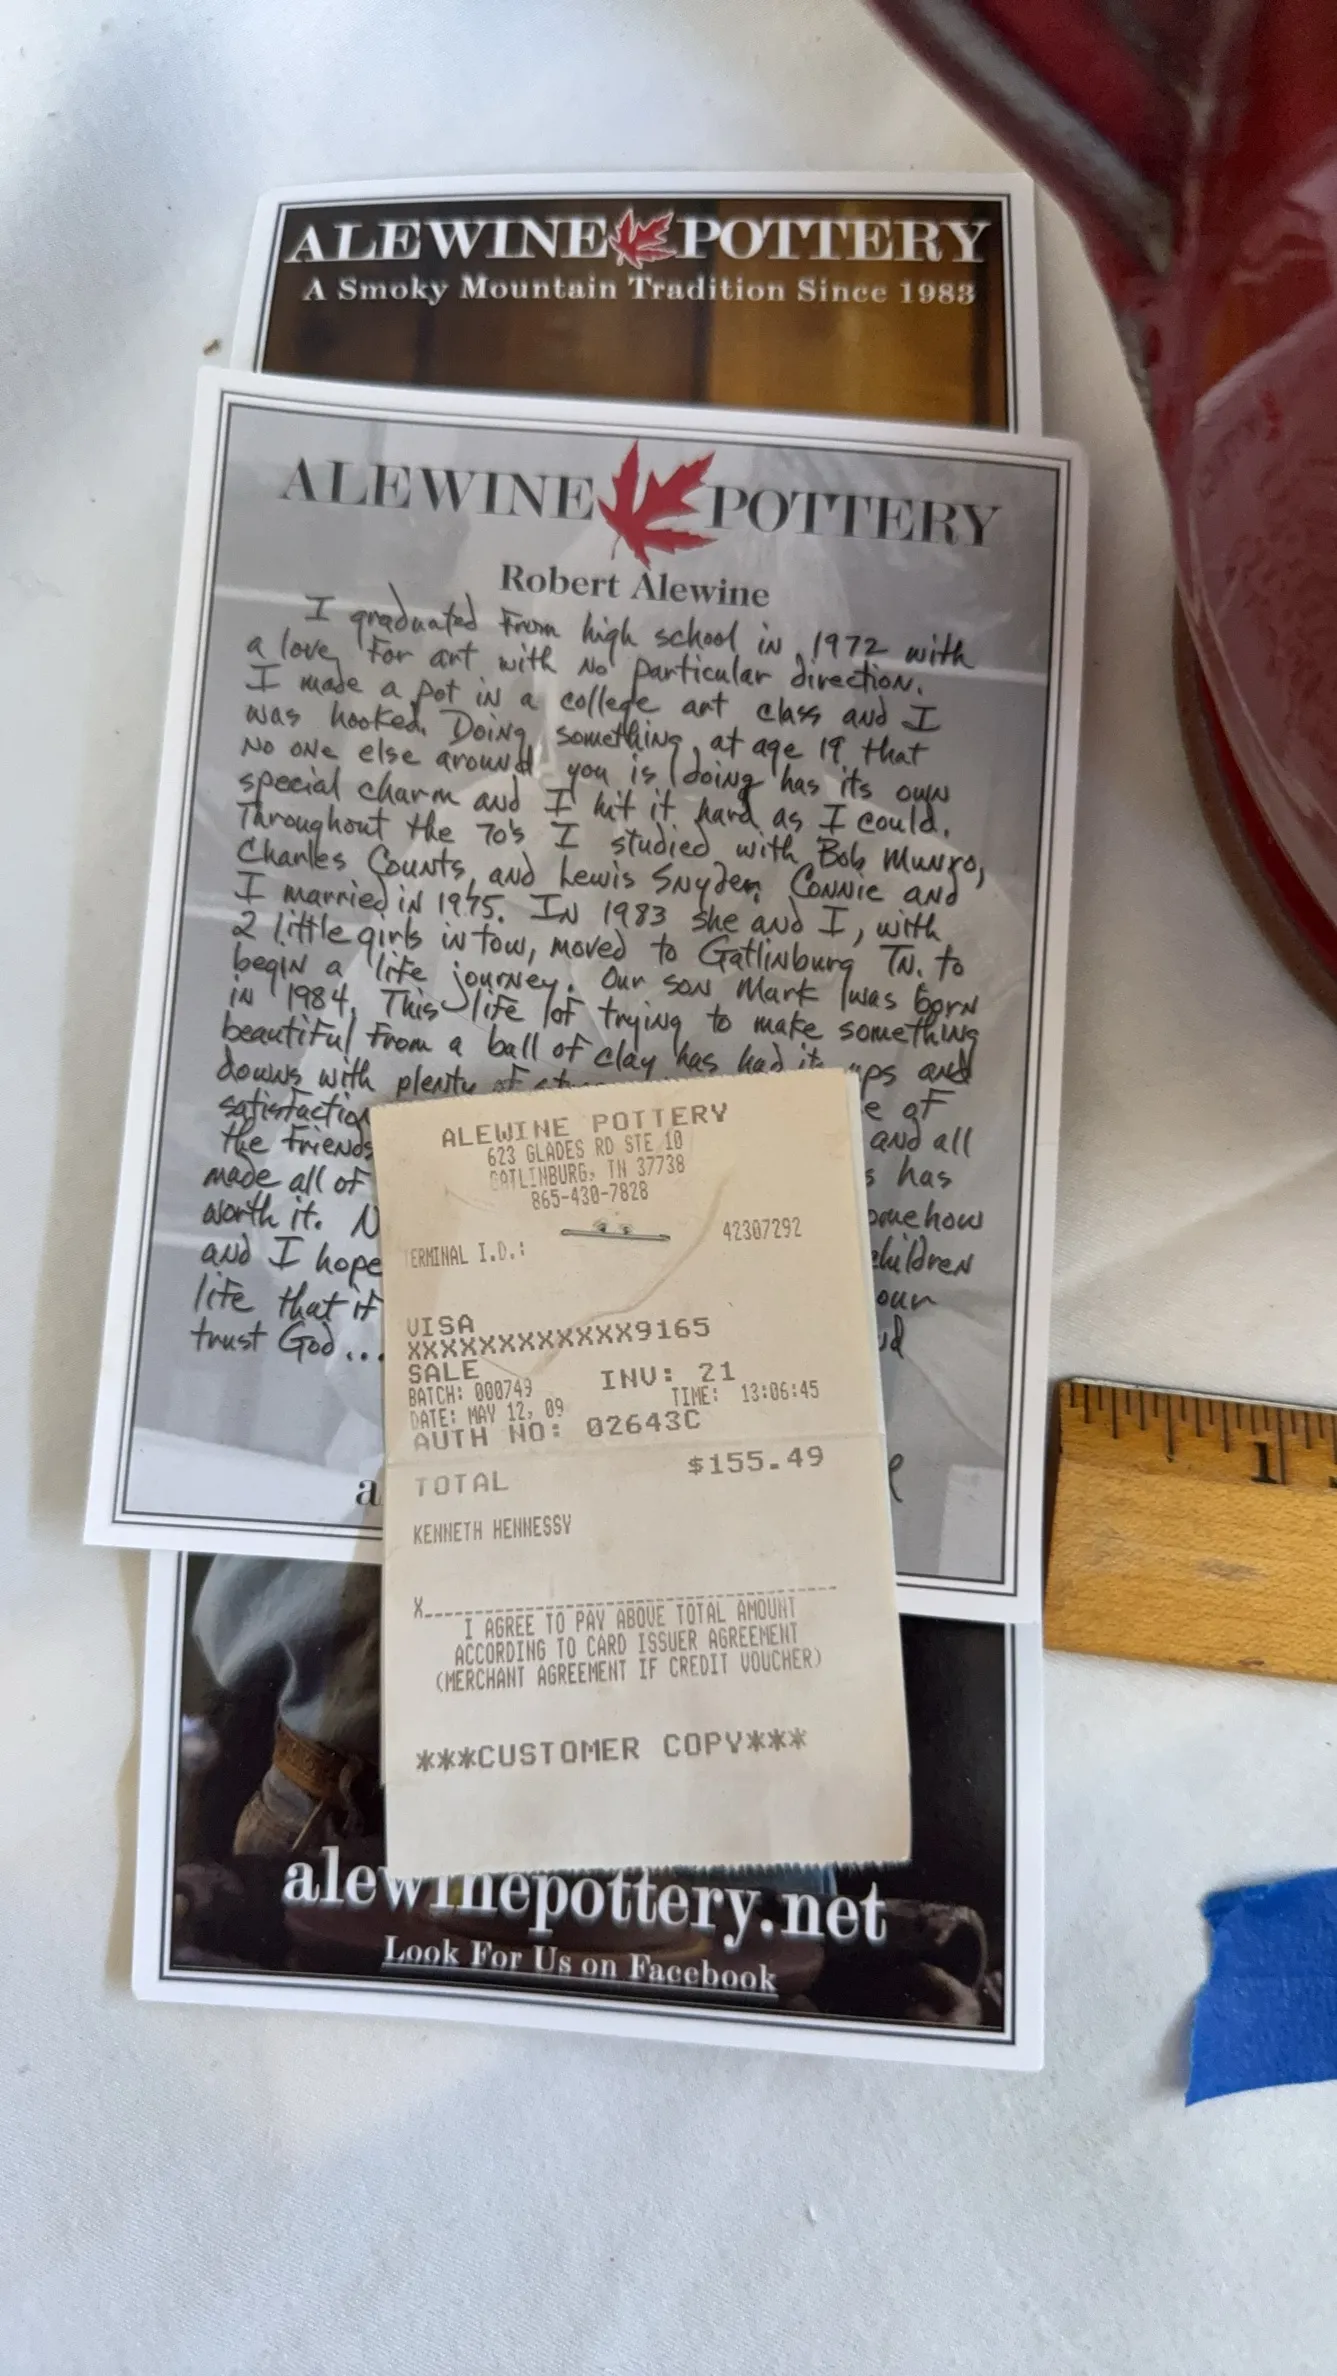 ALEWINE POTTERY
A Smoky Mountain Tradition Since 1983
ALEWINE POTTERY
Robert Alewine
I graduated from high school in 1972 with
a love for art with no particular direction.
I made a pot in a college art class and I
was hooked. Doing something at age 19 that
no one else around you is doing has its own
special charm and I hit it hard as I could.
Throughout the 70's I studied with Bob Munro,
Charles Counts, and Lewis Snyder. Connie and
I married in 1975. In 1983 she and I, with
2 little girls in tow, moved to Gatlinburg TN. to
begin a life journey. Our son Mark was born
in 1984. This life of trying to make something
beautiful from a ball of clay has had its ups and
downs with plenty of
satisfaction e of
the friends and all
made all of s has
worth it. N omehow
and I hope children
life that if our
trust God...
a
ALEWINE POTTERY
623 GLADES RD STE 10
GATLINBURG, TN 37738
865-430-7828
TERMINAL I.D.: 42307292
VISA
XXXXXXXXXXXX9165
SALE INV: 21
BATCH: 000749 TIME: 13:06:45
DATE: MAY 12, 09
AUTH NO: 02643C
TOTAL $155.49
KENNETH HENNESSY
X
I AGREE TO PAY ABOVE TOTAL AMOUNT
ACCORDING TO CARD ISSUER AGREEMENT
(MERCHANT AGREEMENT IF CREDIT VOUCHER)
***CUSTOMER COPY***
alewinepottery.net
Look For Us on Facebook
1